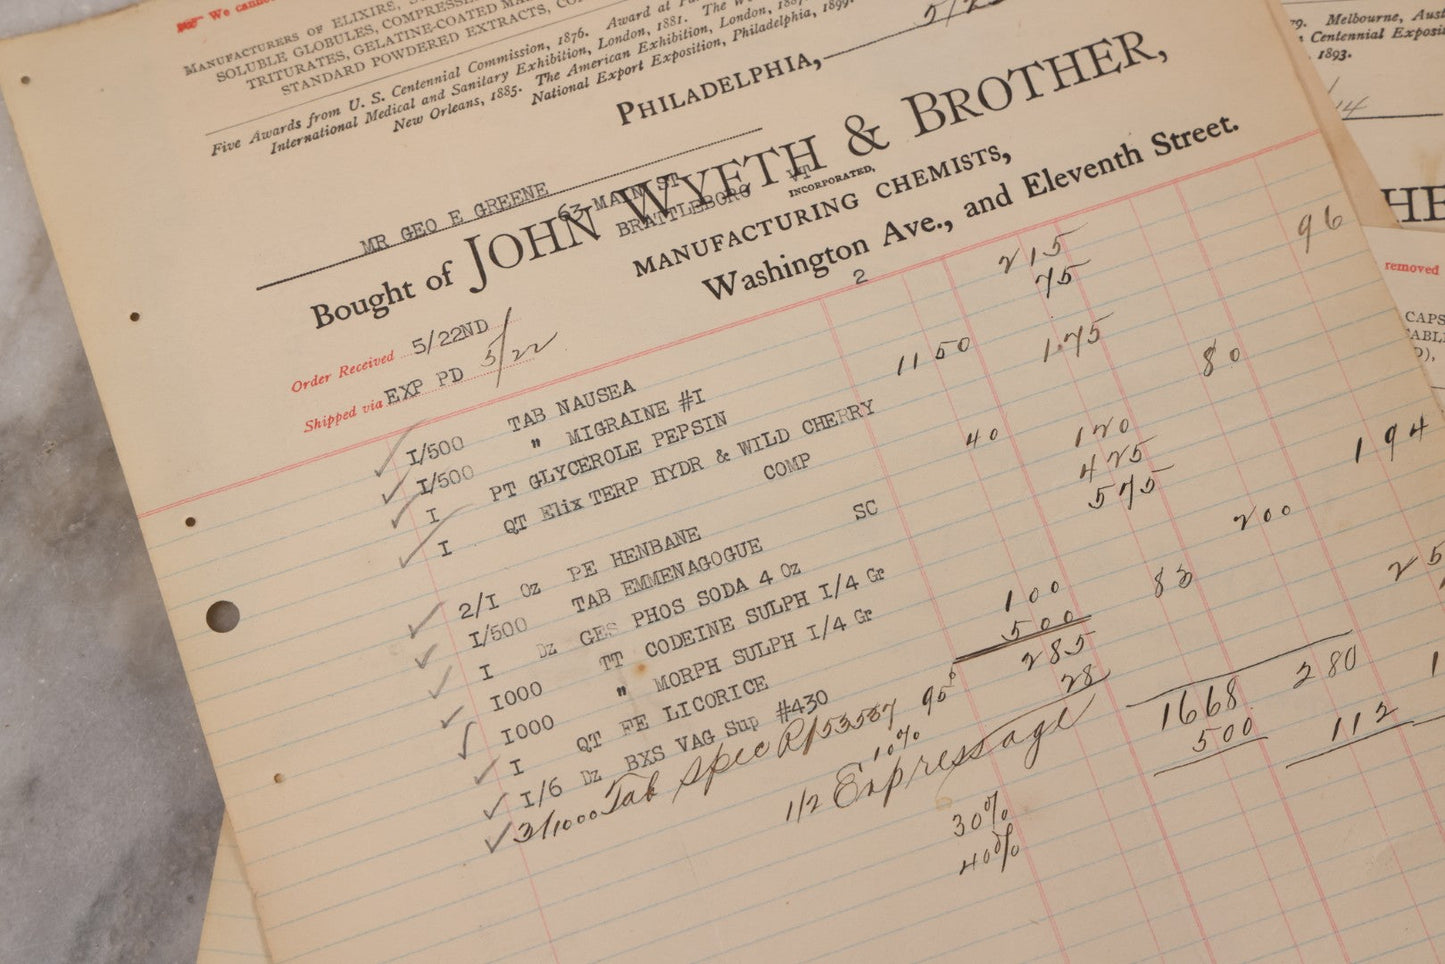 We cannot
MANUFACTURERS OF ELIXIRS,
SOLUBLE GLOBULES, COMPRESSED
TRITURATES, GELATINE-COATED
STANDARD POWDERED EXTRACTS,
Five Awards from U. S. Centennial Commission, 1876. Award at
International Medical and Sanitary Exhibition, London, 1881. The
New Orleans, 1885. The American Exhibition, London,
National Export Exposition, Philadelphia, 1899.
PHILADELPHIA,
MR GEO E GREENE
63 MAIN ST
BRATTLEBORO VT
Bought of JOHN WYETH & BROTHER,
INCORPORATED,
MANUFACTURING CHEMISTS,
Washington Ave., and Eleventh Street.
Order Received 5/22ND
Shipped via EXP PD 5/22
2
I/500 TAB NAUSEA 215 96
I/500 " MIGRAINE #I 75
I PT GLYCEROLE PEPSIN 1150 175
I QT Elix TERP HYDR & WILD CHERRY 80
COMP
2/I Oz PE HENBANE SC 40 120
I/500 TAB EMMENAGOGUE 425 194
I Dz GES PHOS SODA 4 Oz 575
I000 TT CODEINE SULPH I/4 Gr 200
I000 " MORPH SULPH I/4 Gr
I QT FE LICORICE 100 83
I/6 Dz BXS VAG Sup #430 500
3/1000 Tab Spec 95 285 1668 280
10% 28 500 112
1/2 Expressage
30%
40%
Melbourne,
Centennial
1893.
removed